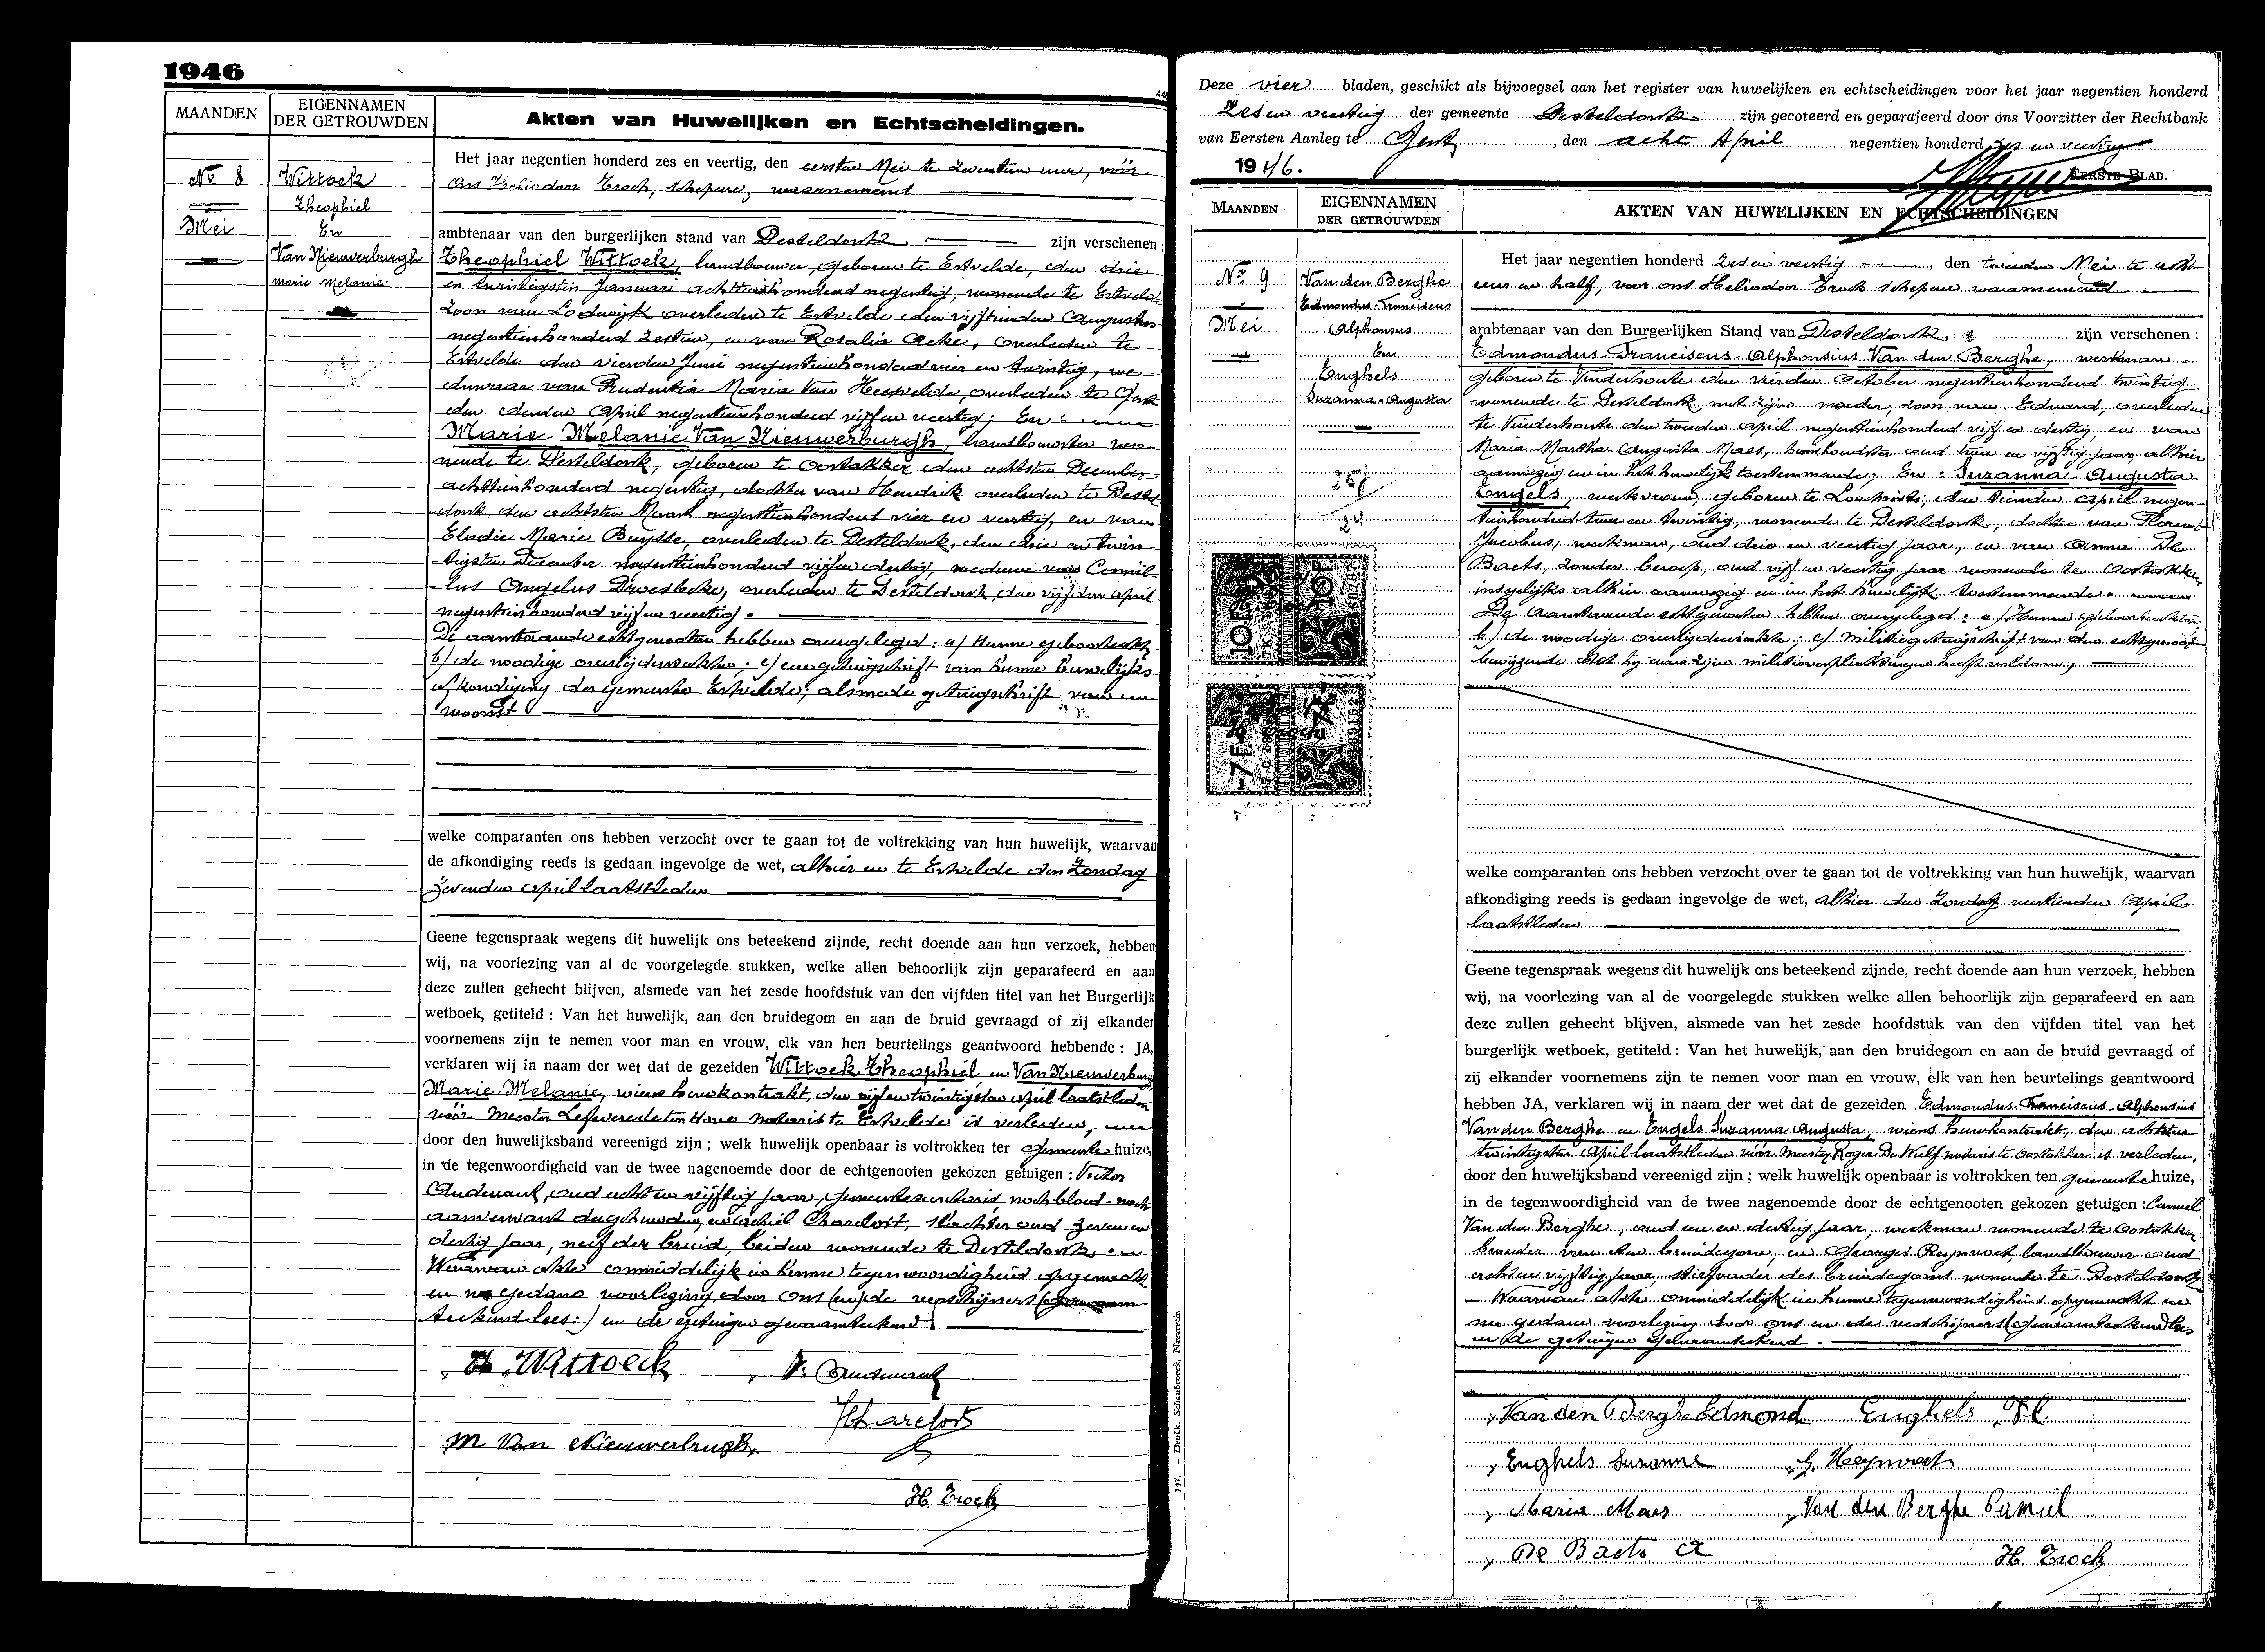 1946
MAANDEN
EIGENNAMEN
DER GETROUWDEN
Akten van Huwelijken en Echtscheidingen.
No 8
Mei
Wittoek
Theophiel
En
Van Nieuwerburgh
Marie Melanie
Het jaar negentien honderd zes en veertig, den eersten Mei te zeventien ure, vóór
Ons Heliodoor Troch, schepene, waarnemend
ambtenaar van den burgerlijken stand van Desteldonk zijn verschenen:
Theophiel Wittoek, landbouwer, geboren te Ertvelde, den drie
en twintigsten Januari achttienhonderd negentig, wonende te Ertvelde
zoon van Lodewijk overleden te Ertvelde den vijftienden Augustus
negentienhonderd zestien, en van Rosalia Acke, overleden te
Ertvelde den vierden Juni negentienhonderd vier en twintig, we-
duwnaar van Prudentia Maria Van Heesvelde, overleden te Gent
den derden April negentienhonderd vijf en veertig; En:
Marie Melanie Van Nieuwerburgh, landbouwster wo-
nende te Desteldonk, geboren te Oostakker den achtsten December
achttienhonderd negentig, dochter van Hendrik overleden te Destel
donk den achtsten Maart negentienhonderd vier en veertig, en van
Elodie Marie Buysse, overleden te Desteldonk, den drie en twin-
tigsten December negentienhonderd vijf en dertig, weduwe van Camil-
lus Angelus Droesbeke, overleden te Desteldonk den vijfden April
negentienhonderd vijf en veertig.
De aanstaande echtgenooten hebben overgelegd: a/ Hunne geboorteakte
b/ de noodige overlijdensakten; c/ een getuigschrift van hunne huwelijks
afkondiging der gemeente Ertvelde; alsmede getuigschrift van
woonst
welke comparanten ons hebben verzocht over te gaan tot de voltrekking van hun huwelijk, waarvan
de afkondiging reeds is gedaan ingevolge de wet, alhier en te Ertvelde den Zondag
zevenden April laatstleden
Geene tegenspraak wegens dit huwelijk ons beteekend zijnde, recht doende aan hun verzoek, hebben
wij, na voorlezing van al de voorgelegde stukken, welke allen behoorlijk zijn geparafeerd en aan
deze zullen gehecht blijven, alsmede van het zesde hoofdstuk van den vijfden titel van het Burgerlijk
wetboek, getiteld : Van het huwelijk, aan den bruidegom en aan de bruid gevraagd of zij elkander
voornemens zijn te nemen voor man en vrouw, elk van hen beurtelings geantwoord hebbende : JA,
verklaren wij in naam der wet dat de gezeiden Wittoek Theophiel en Van Nieuwerburgh
Marie Melanie, wiens huwkontrakt, den vijf en twintigsten April laatstleden
vóór Meester Lefevere de ten Hove notaris te Ertvelde is verleden,
door den huwelijksband vereenigd zijn ; welk huwelijk openbaar is voltrokken ter gemeente huize,
in de tegenwoordigheid van de twee nagenoemde door de echtgenooten gekozen getuigen : Victor
Audenaut, oud acht en vijftig jaar, gemeentesecretaris noch bloed- noch
aanverwant der gehuwden, en Achiel Charelort, slachter oud zeven en
dertig jaar, neef der bruid, beiden wonende te Desteldonk.
Waarvan akte onmiddelijk in hunne tegenwoordigheid opgemaakt
en na gedane voorlezing door ons (en) de verschijners
teekend lees:) en de getuigen genaamteekend
Th. Wittoeck
V. Audenaut
M Van Nieuwerburgh
H. Troch
147. — Drukk. Schaubroeck, Nazareth.
Deze vier bladen, geschikt als bijvoegsel aan het register van huwelijken en echtscheidingen voor het jaar negentien honderd
zes en veertig der gemeente Desteldonk zijn gecoteerd en geparafeerd door ons Voorzitter der Rechtbank
van Eersten Aanleg te Gent, den acht April negentien honderd zes en veertig
1946.
EERSTE BLAD.
MAANDEN
EIGENNAMEN
DER GETROUWDEN
AKTEN VAN HUWELIJKEN EN ECHTSCHEIDINGEN
No 9
Mei
Van den Berghe
Edmondus-Franciscus
Alphonsus
En
Enghels
Suzanna-Augusta
Het jaar negentien honderd zes en veertig, den tweeden Mei te acht
uur en half, voor ons Heliodoor Troch schepene waarnemend
ambtenaar van den Burgerlijken Stand van Desteldonk zijn verschenen :
Edmondus-Franciscus-Alphonsius Van den Berghe, werkman
geboren te Vinderhoute den vierden October negentienhonderd twintig
wonende te Desteldonk, met zijne moeder, zoon van Eduard, overleden
te Vinderhoute den tweeden April negentienhonderd vijf en dertig, en van
Maria-Martha-Augusta Maes, huishoudster oud twee en vijftig jaar, alhier
aanwezig en in het huwelijk toestemmende; En: Suzanna Augusta
Engels, werkvrouw, geboren te Loochristi, den tienden April negen-
tienhonderd twee en twintig, wonende te Desteldonk, dochter van Florent
Jacobus, werkman, oud drie en veertig jaar, en van Anna De
Baets, zonder beroep, oud vijf en veertig jaar wonende te Oostakker
insgelijks alhier aanwezig en in het huwelijk toestemmende.
De aanstaande echtgenooten hebben overgelegd: a/ Hunne geboorteakten,
b/ de noodige overlijdensakte; c/ militiegetuigschrift van den echtgenoot
bewijzende dat hij aan zijne militieverplichtingen heeft voldaan;
10F
10F
7F
welke comparanten ons hebben verzocht over te gaan tot de voltrekking van hun huwelijk, waarvan
afkondiging reeds is gedaan ingevolge de wet, alhier den Zondag veertienden April
laatstleden
Geene tegenspraak wegens dit huwelijk ons beteekend zijnde, recht doende aan hun verzoek, hebben
wij, na voorlezing van al de voorgelegde stukken welke allen behoorlijk zijn geparafeerd en aan
deze zullen gehecht blijven, alsmede van het zesde hoofdstuk van den vijfden titel van het
burgerlijk wetboek, getiteld : Van het huwelijk, aan den bruidegom en aan de bruid gevraagd of
zij elkander voornemens zijn te nemen voor man en vrouw, elk van hen beurtelings geantwoord
hebben JA, verklaren wij in naam der wet dat de gezeiden Edmondus-Franciscus-Alphonsius
Van den Berghe en Engels Suzanna Augusta, wiens huwkontrakt, den achtsten
twintigsten April laatstleden vóór Meester Roger De Wulf notaris te Oostakker is verleden,
door den huwelijksband vereenigd zijn ; welk huwelijk openbaar is voltrokken ten gemeente huize,
in de tegenwoordigheid van de twee nagenoemde door de echtgenooten gekozen getuigen : Camiel
Van den Berghe, oud een en dertig jaar, werkman wonende te Oostakker
broeder van den bruidegom, en Georges Reynvoet, landbouwer oud
acht en vijftig jaar, stiefvader des bruidegoms wonende te Desteldonk
Waarvan akte onmiddelijk in hunne tegenwoordigheid opgemaakt en
na gedane voorlezing door ons en de verschijners (genaamteekend lees
en de getuigen genaamteekend.
Van den Berghe Edmond Enghels Fl.
Enghels Suzanne G. Reynvoet
Maria Maes Van den Berghe Camiel
De Baets A H. Troch